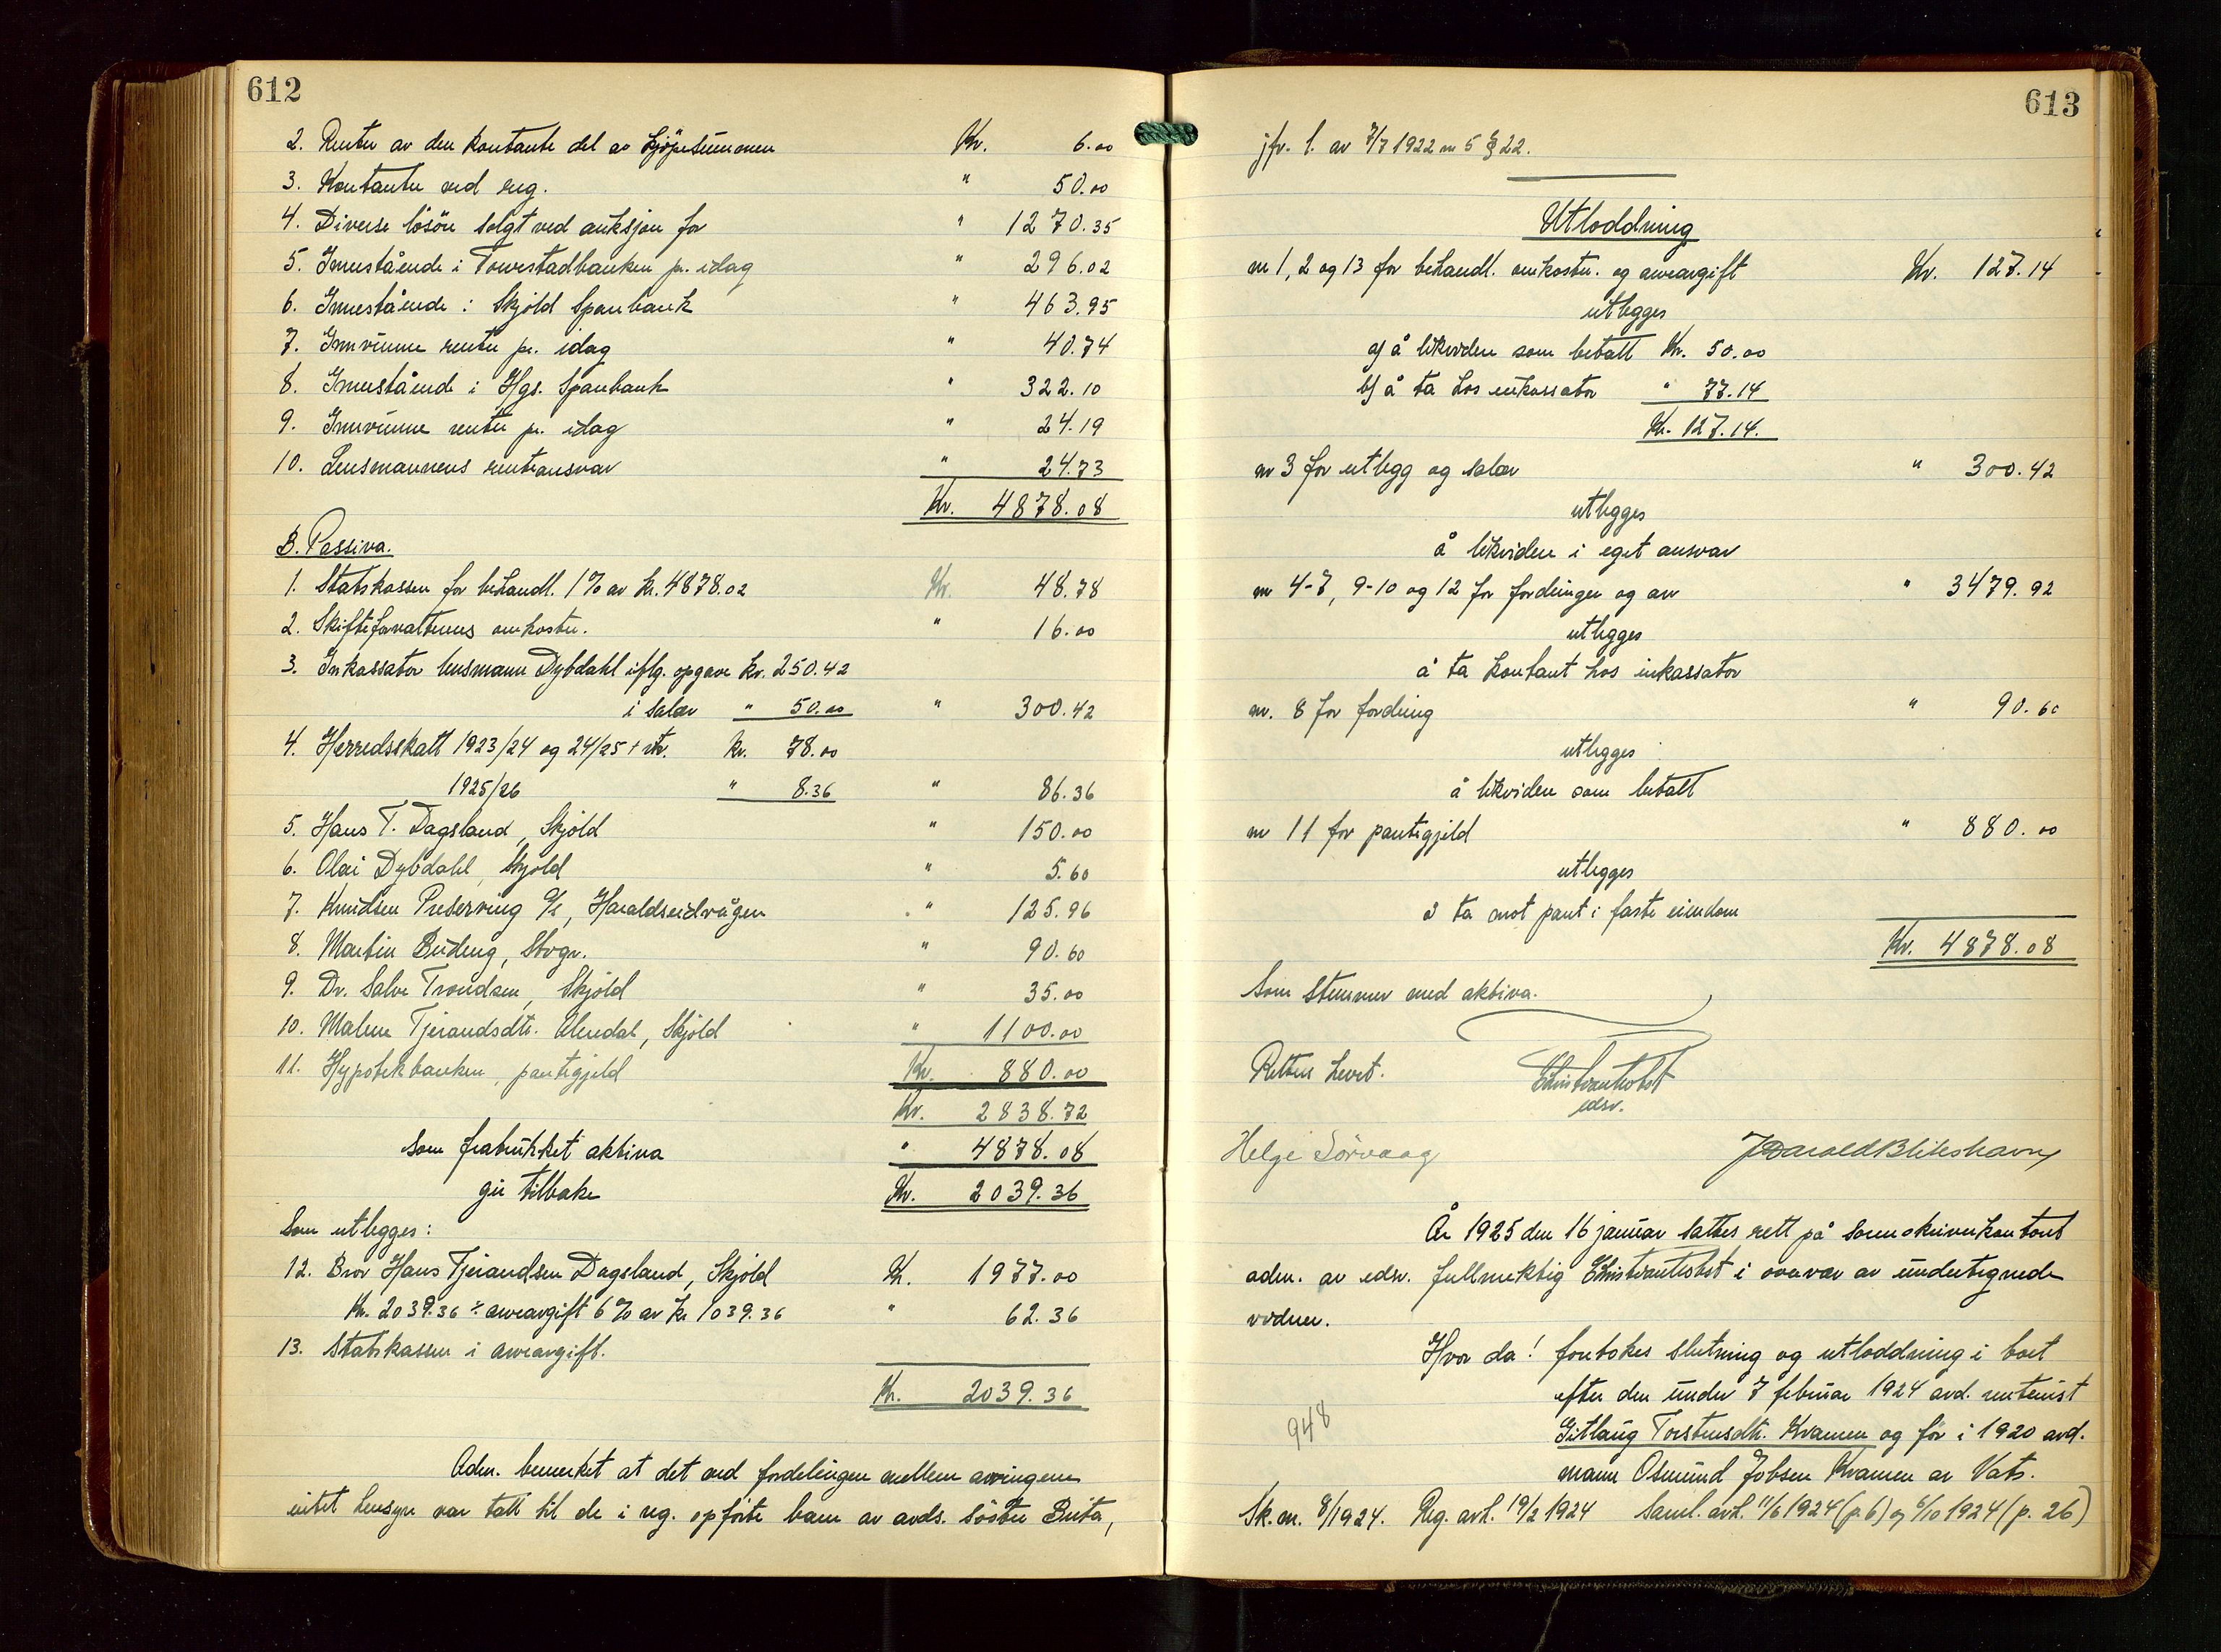 612
2. Renter av den kontante del av kjøpesummen Kr. 6.00
3. Kontanter ved reg. " 50.00
4. Diverse løsøre solgt ved auksjon for " 1270.35
5. Innestående i Torvestadbanken pr. idag " 296.02
6. Innestående i Skjold Sparebank " 463.95
7. Innvunne renter pr. idag " 40.74
8. Innestående i Hgs. Sparebank " 322.10
9. Innvunne renter pr. idag " 24.19
10. Lensmannens renteansvar " 24.73
Kr. 4878.08
B. Passiva.
1. Statskassen for behandl. 1% av kr. 4878.02 Kr. 48.78
2. Skifteforvalterens omkostn. " 16.00
3. Inkassator lensmann Dybdahl iflg. opgave kr. 250.42
i salær " 50.00 " 300.42
4. Herredsskatt 1923/24 og 24/25 + rtr. kr. 78.00
1925/26 " 8.36 " 86.36
5. Hans T. Dagsland, Skjold " 150.00
6. Olai Dybdahl, Skjold " 5.60
7. Knudsen Preserving A/S, Haraldseidvågen " 125.96
8. Martin , Stvgr. " 90.60
9. Dr. Salve Trondsen, Skjold " 35.00
10. Malene Tjerandsdtr. Ulvedal, Skjold " 1100.00
11. Hypotekbanken, pantegjeld Kr. 880.00
Kr. 2838.72
Som fratrukket aktiva " 4878.08
gir tilbake Kr. 2039.36
Som utlegges:
12. Bror Hans Tjerandsen Dagsland, Skjold Kr. 1977.00
Kr. 2039.36 ÷ arveavgift 6% av kr 1039.36 " 62.36
13. Statskassen i arveavgift.
Kr. 2039.36
Adm. bemerket at det ved fordelingen mellem arvingene
intet hensyn var tatt til de i reg. opførte barn av avds. søster Brita,
613
jfr. l. av 7/7 1922 nr 5 § 22.
Utloddning
nr 1, 2 og 13 for behandl. omkostn. og arveavgift Kr. 127.14
utlegges
a) å likvidere som betalt Kr. 50.00
b) å ta hos inkassator " 77.14
Kr. 127.14.
nr 3 for utlegg og salær " 300.42
utlegges
å likvidere i eget ansvar
nr 4-7, 9-10 og 12 for fordringer og arv " 3479.92
utlegges
å ta kontant hos inkassator
nr. 8 for fordring " 90.60
utlegges
å likvidere som betalt
nr 11 for pantegjeld " 880.00
utlegges
å ta mot pant i faste eiendom
Kr. 4878.08
Som stemmer med aktiva.
Retten hevet. Chr. Svanholst
edsv.
Helge Sørvaag Harald Blikshavn
År 1925 den 16 januar sattes rett på sorenskriverkontoret
adm. av edsv. fullmektig Chr. Svanholst i overvær av undertegnede
vidner.
Hvor da! foretokes slutning og utloddning i boet
efter den under 7 februar 1924 avd. rentenist
948
Gitlaug Torstensdtr. Kvamen og før i 1920 avd.
mann Osmund Jobsen Kvamen av Vats.
Sk. nr. 8/1924. Reg. avh. 19/2 1924 Saml. avh. 11/6 1924 (p. 6) og 6/10 1924 (p. 26)